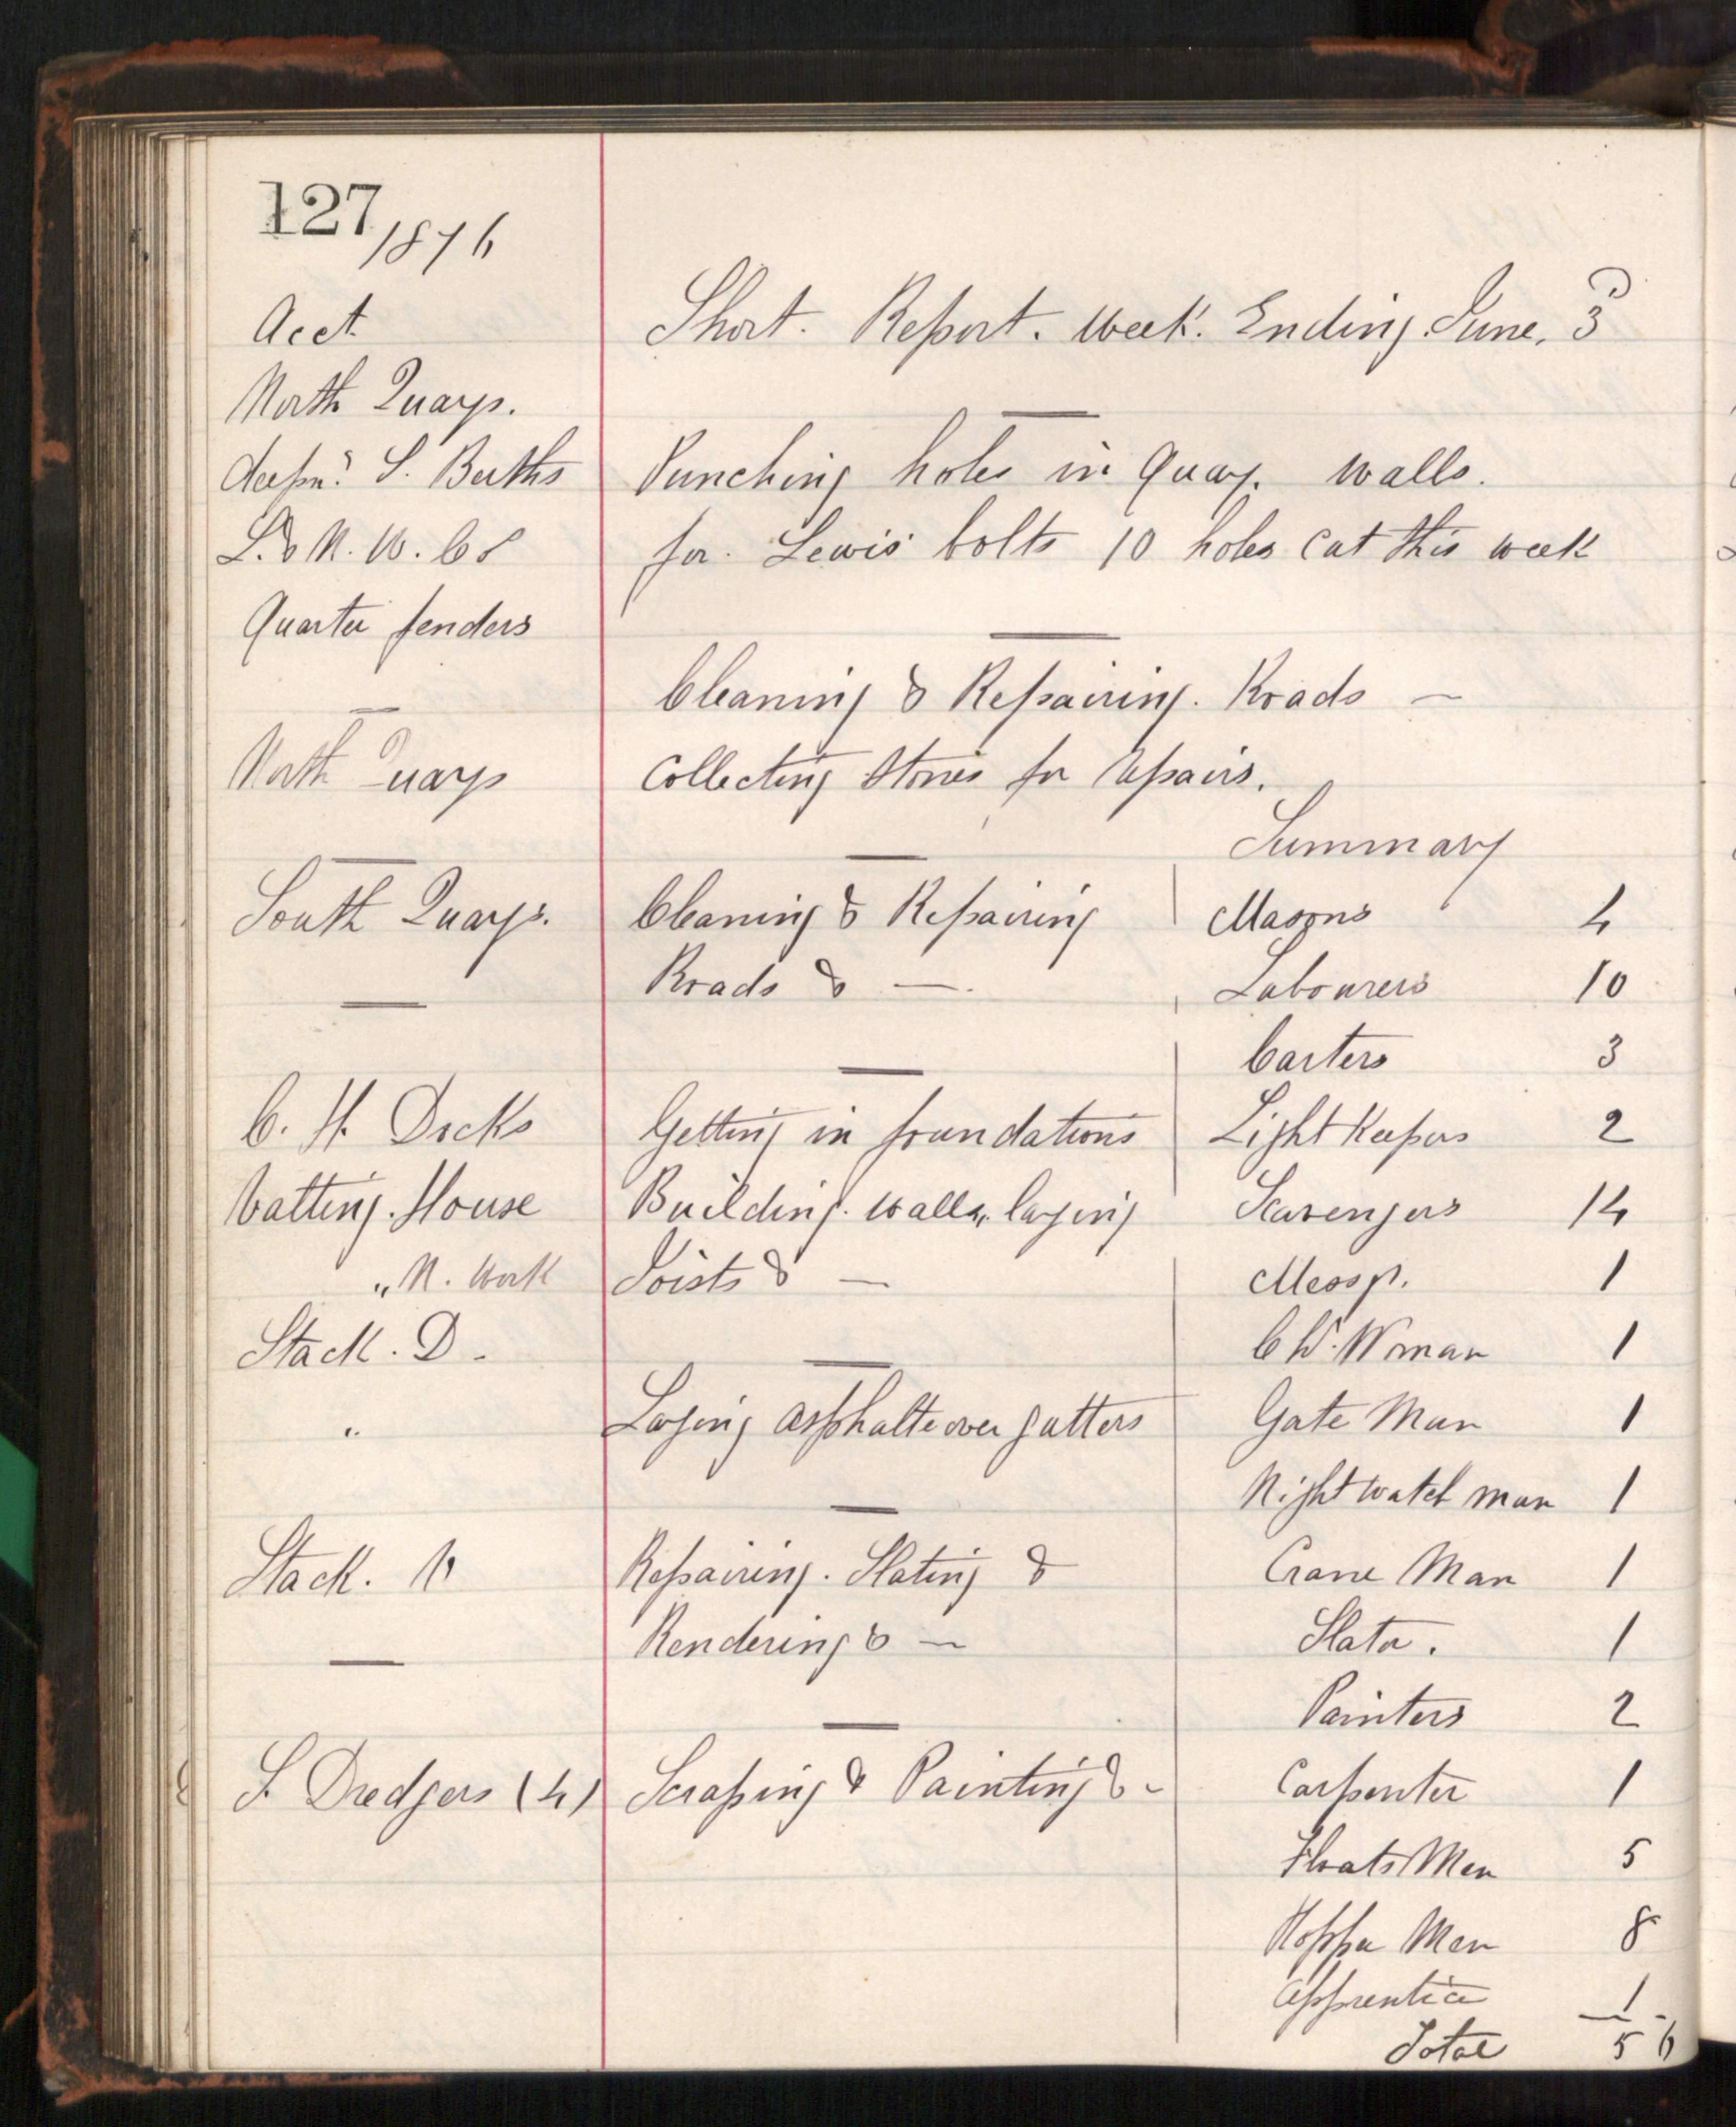 127
1876
Acct
Short. Report. Week. Ending June. 3
North Quays.
deepng S. Berths
Punching holes in Quay. walls.
L. & N. W. Co
for. Lewis bolts 10 holes cut this week
Quarter fenders
Cleaning & Repairing. Roads —
North Quays
Collecting Stones for repairs.
Summary
South Quays.
Cleaning & Repairing
Roads & —
Masons 4
Labourers 10
Carters 3
C. H. Docks
Getting in foundations
Light Keepers 2
Vatting. House
Building. walls, laying
Scavengers 14
" N. Work
Joists & —
Messr. 1
Stack. D.
C W. Woman 1
"
Laying asphalte over gutters
Gate Man 1
Night watch man 1
Stack.
Repairing. Slating &
Crane Man 1
Rendering & —
Slater. 1
Painters 2
S. Dredgers (4)
Scraping & Painting & -
Carpenter 1
Floats Men 5
Hopper Men 8
Apprentice 1
Total 56